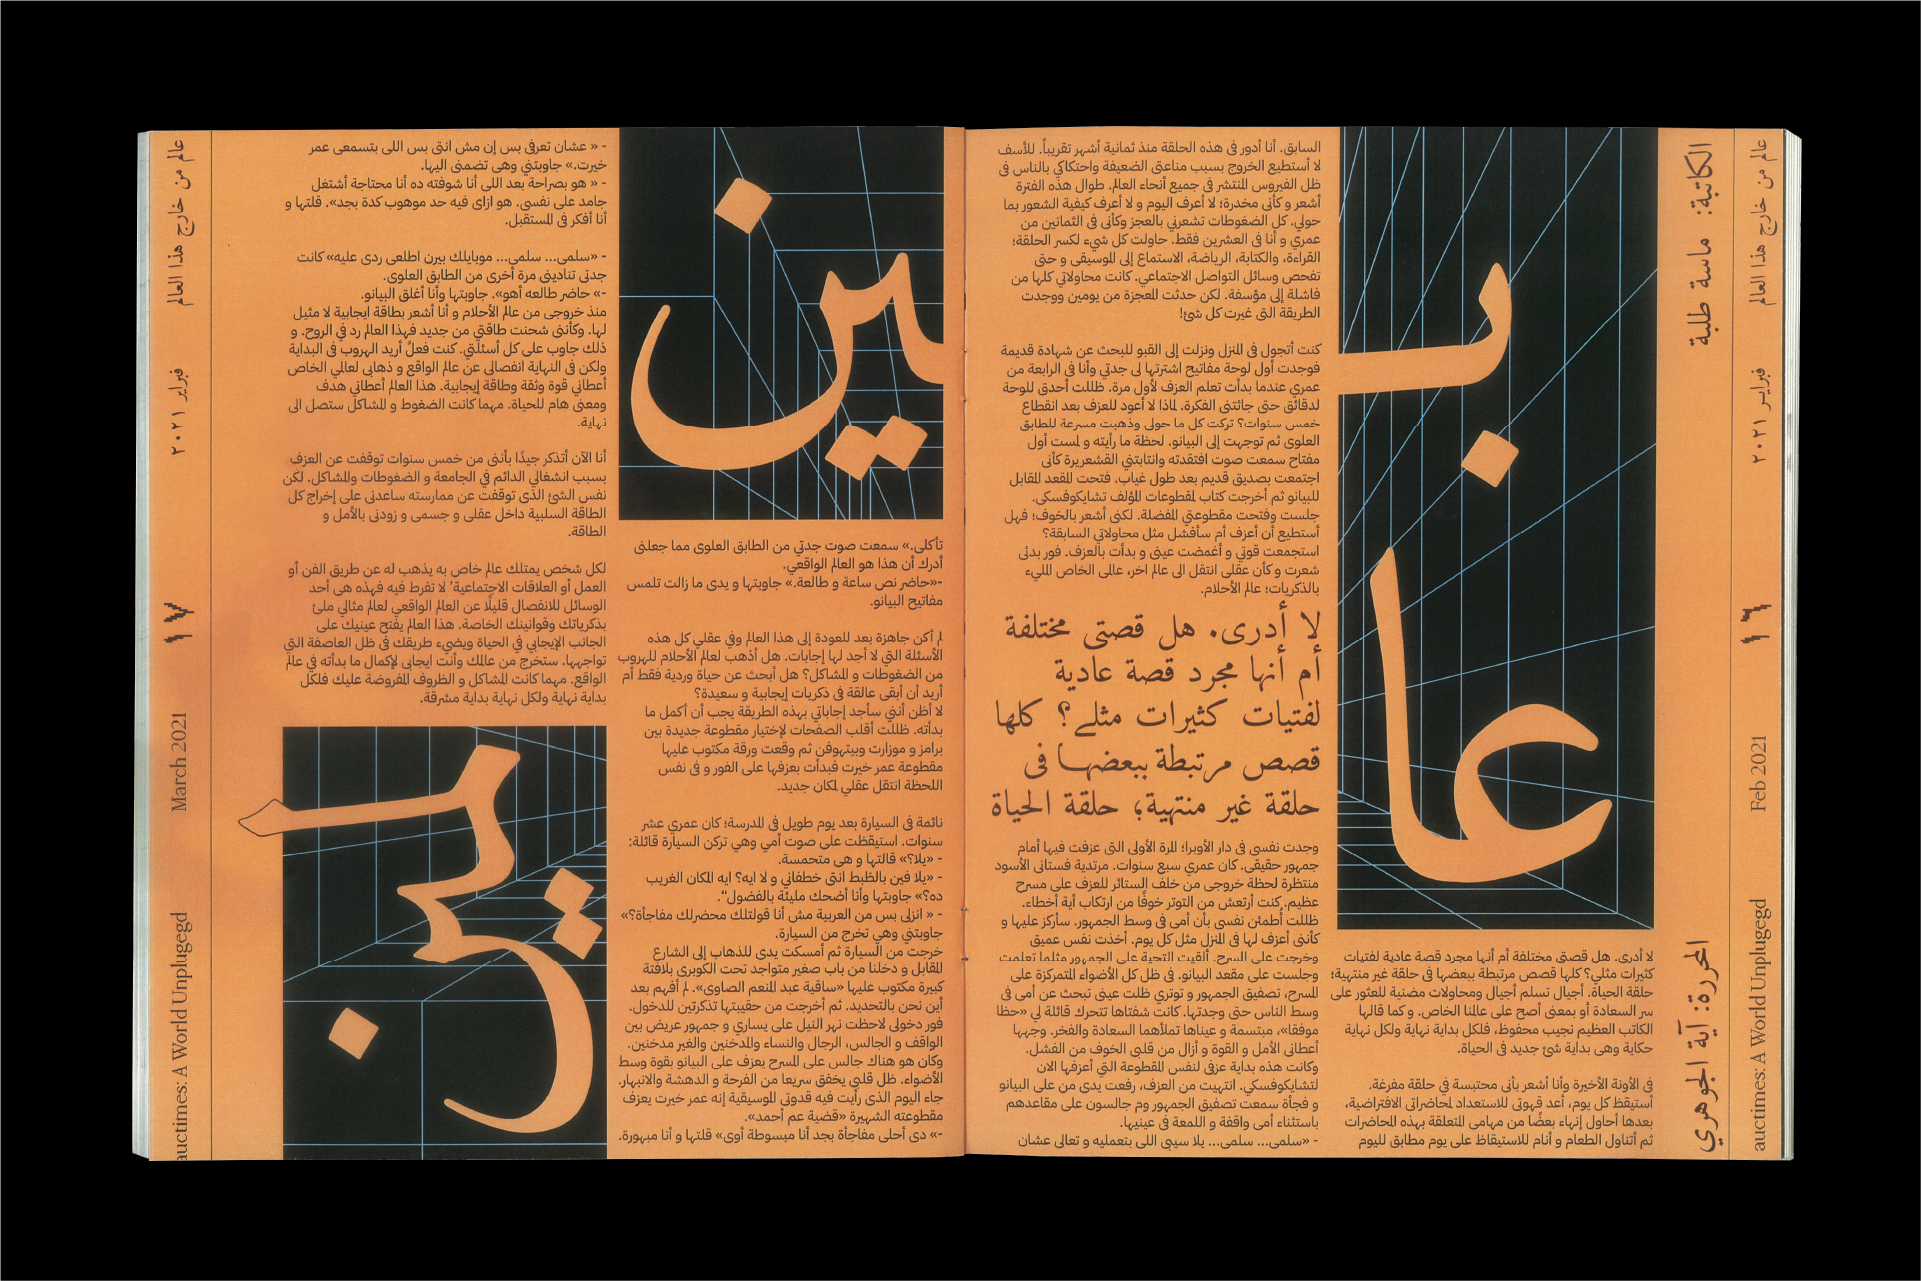 عالم من خارج هذا العالم
فبرايـر ٢٠٢١
١٦
Feb 2021
auctimes: A World Unplugegd
الكاتبة: ماسة طلبة
المحررة: آية الجوهري
بـ
ين
عا
لمين
لا أدرى. هل قصتى مختلفة أم أنها مجرد قصة عادية لفتيات
كثيرات مثلي؟ كلها قصص مرتبطة ببعضها فى حلقة غير منتهية؛
حلقة الحياة. أجيال تسلم أجيال ومحاولات مضنية للعثور على
سر السعادة أو بمعنى أصح على عالمنا الخاص. و كما قالها
الكاتب العظيم نجيب محفوظ، فلكل بداية نهاية ولكل نهاية
حكاية وهى بداية شئ جديد فى الحياة.
فى الأونة الأخيرة وأنا أشعر بأنى محتبسة في حلقة مفرغة.
أستيقظ كل يوم، أعد قهوتى للاستعداد لمحاضراتى الافتراضية،
بعدها أحاول إنهاء بعضًا من مهامى المتعلقة بهذه المحاضرات
ثم أتناول الطعام و أنام للاستيقاظ على يوم مطابق لليوم
السابق. أنا أدور فى هذه الحلقة منذ ثمانية أشهر تقريباً. للأسف
لا أستطيع الخروج بسبب مناعتى الضعيفة واحتكاكي بالناس فى
ظل الفيروس المنتشر فى جميع أنحاء العالم. طوال هذه الفترة
أشعر و كأنى مخدرة؛ لا أعرف اليوم و لا أعرف كيفية الشعور بما
حولي. كل الضغوطات تشعرني بالعجز وكأنى فى الثمانين من
عمري و أنا فى العشرين فقط. حاولت كل شيء لكسر الحلقة؛
القراءة، والكتابة، الرياضة، الاستماع إلى الموسيقى و حتى
تفحص وسائل التواصل الاجتماعي. كانت محاولاتي كلها من
فاشلة إلى مؤسفة. لكن حدثت المعجزة من يومين ووجدت
الطريقة التى غيرت كل شئ!
كنت أتجول فى المنزل ونزلت إلى القبو للبحث عن شهادة قديمة
فوجدت أول لوحة مفاتيح اشترتها لى جدتي وأنا فى الرابعة من
عمري عندما بدأت تعلم العزف لأول مرة. ظللت أحدق للوحة
لدقائق حتى جائتنى الفكرة. لماذا لا أعود للعزف بعد انقطاع
خمس سنوات؟ تركت كل ما حولى وذهبت مسرعة للطابق
العلوى ثم توجهت إلى البيانو. لحظة ما رأيته و لمست أول
مفتاح سمعت صوت افتقدته وانتابتني القشعريرة كأنى
اجتمعت بصديق قديم بعد طول غياب. فتحت المقعد المقابل
للبيانو ثم أخرجت كتاب لمقطوعات المؤلف تشايكوفسكى.
جلست وفتحت مقطوعتي المفضلة. لكنى أشعر بالخوف؛ فهل
أستطيع أن أعزف أم سأفشل مثل محاولاتي السابقة؟
استجمعت قوتي و أغمضت عينى و بدأت بالعزف. فور بدئى
شعرت و كأن عقلى انتقل الى عالم اخر، عالمى الخاص المليء
بالذكريات؛ عالم الأحلام.
لا أدرى. هل قصتى مختلفة
أم أنها مجرد قصة عادية
لفتيات كثيرات مثلي؟ كلها
قصص مرتبطة ببعضهـا فى
حلقة غير منتهية؛ حلقة الحياة
وجدت نفسى فى دار الأوبرا؛ المرة الأولى التى عزفت فيها أمام
جمهور حقيقى. كان عمري سبع سنوات. مرتدية فستانى الأسود
منتظرة لحظة خروجى من خلف الستائر للعزف على مسرح
عظيم. كنت أرتعش من التوتر خوفًا من ارتكاب أية أخطاء.
ظللت أطمئن نفسى بأن أمى فى وسط الجمهور. سأركز عليها و
كأننى أعزف لها فى المنزل مثل كل يوم. أخذت نفس عميق
وخرجت على المسرح. ألقيت التحية على الجمهور مثلما تعلمت
وجلست على مقعد البيانو. فى ظل كل الأضواء المتمركزة على
المسرح، تصفيق الجمهور و توتري ظلت عينى تبحث عن أمى فى
وسط الناس حتى وجدتها. كانت شفتاها تتحرك قائلة لي «حظا
موفقا»، مبتسمة و عيناها تملأهما السعادة والفخر. وجهها
أعطانى الأمل و القوة و أزال من قلبى الخوف من الفشل.
وكانت هذه بداية عزفى لنفس المقطوعة التي أعزفها الان
لتشايكوفسكي. انتهيت من العزف، رفعت يدى من على البيانو
و فجأة سمعت تصفيق الجمهور وم جالسون على مقاعدهم
باستثناء أمى واقفة و اللمعة فى عينيها.
- «سلمى... سلمى... يلا سيبى اللى بتعمليه و تعالى عشان
تأكلى.» سمعت صوت جدتي من الطابق العلوى مما جعلنى
أدرك أن هذا هو العالم الواقعي.
-«حاضر نص ساعة و طالعة.» جاوبتها و يدى ما زالت تلمس
مفاتيح البيانو.
لم أكن جاهزة بعد للعودة إلى هذا العالم وفي عقلي كل هذه
الأسئلة التي لا أجد لها إجابات. هل أذهب لعالم الأحلام للهروب
من الضغوطات و المشاكل؟ هل أبحث عن حياة وردية فقط أم
أريد أن أبقى عالقة في ذكريات إيجابية و سعيدة؟
لا أظن أنني سأجد إجاباتي بهذه الطريقة يجب أن أكمل ما
بدأته. ظللت أقلب الصفحات لإختيار مقطوعة جديدة بين
برامز و موزارت وبيتهوفن ثم وقعت ورقة مكتوب عليها
مقطوعة عمر خيرت فبدأت بعزفها على الفور و فى نفس
اللحظة انتقل عقلي لمكان جديد.
نائمة فى السيارة بعد يوم طويل فى المدرسة؛ كان عمري عشر
سنوات. استيقظت على صوت أمي وهي تركن السيارة قائلة:
- «يلا؟» قالتها و هى متحمسة.
- «يلا فين بالظبط انتى خطفاني و لا ايه؟ ايه المكان الغريب
ده؟» جاوبتها وأنا أضحك مليئة بالفضول“.
- « انزلى بس من العربية مش أنا قولتلك محضرلك مفاجأة؟»
جاوبتني وهي تخرج من السيارة.
خرجت من السيارة ثم أمسكت يدى للذهاب إلى الشارع
المقابل و دخلنا من باب صغير متواجد تحت الكوبرى بلافتة
كبيرة مكتوب عليها «ساقية عبد المنعم الصاوى». لم أفهم بعد
أين نحن بالتحديد. ثم أخرجت من حقيبتها تذكرتين للدخول.
فور دخولى لاحظت نهر النيل على يساري و جمهور عريض بين
الواقف و الجالس، الرجال والنساء والمدخنين والغير مدخنين.
وكان هو هناك جالس على المسرح يعزف على البيانو بقوة وسط
الأضواء. ظل قلبي يخفق سريعا من الفرحة و الدهشة والانبهار.
جاء اليوم الذى رأيت فيه قدوتى الموسيقية إنه عمر خيرت يعزف
مقطوعته الشهيرة «قضية عم أحمد».
-» دى أحلى مفاجأة بجد أنا مبسوطة أوى» قلتها و أنا مبهورة.
- « عشان تعرفى بس إن مش انتى بس اللى بتسمعى عمر
خيرت.» جاوبتني وهى تضمنى اليها.
- « هو بصراحة بعد اللى أنا شوفته ده أنا محتاجة أشتغل
جامد على نفسى. هو ازاى فيه حد موهوب كدة بجد». قلتها و
أنا أفكر فى المستقبل.
- «سلمى... سلمى... موبايلك بيرن اطلعى ردى عليه» كانت
جدتى تنادينى مرة أخرى من الطابق العلوى.
-» حاضر طالعه أهو». جاوبتها وأنا أغلق البيانو.
منذ خروجى من عالم الأحلام و أنا أشعر بطاقة ايجابية لا مثيل
لها. وكأننى شحنت طاقتي من جديد فهذا العالم رد في الروح. و
ذلك جاوب على كل أسئلتي. كنت فعلً أريد الهروب فى البداية
ولكن فى النهاية انفصالى عن عالم الواقع و ذهابى لعالمي الخاص
أعطاني قوة وثقة وطاقة إيجابية. هذا العالم أعطاني هدف
ومعنى هام للحياة. مهما كانت الضغوط و المشاكل ستصل الى
نهاية.
أنا الآن أتذكر جيدًا بأننى من خمس سنوات توقفت عن العزف
بسبب انشغالي الدائم في الجامعة و الضغوطات والمشاكل. لكن
نفس الشئ الذى توقفت عن ممارسته ساعدنى على إخراج كل
الطاقة السلبية داخل عقلى و جسمى و زودنى بالأمل و
الطاقة.
لكل شخص يمتلك عالم خاص به يذهب له عن طريق الفن أو
العمل أو العلاقات الاجتماعية٬ لا تفرط فيه فهذه هى أحد
الوسائل للانفصال قليلًا عن العالم الواقعي لعالم مثالي ملئ
بذكرياتك وقوانينك الخاصة. هذا العالم يفتح عينيك على
الجانب الإيجابي في الحياة ويضيء طريقك في ظل العاصفة التي
تواجهها. ستخرج من عالمك وأنت ايجابي لإكمال ما بدأته في عالم
الواقع. مهما كانت المشاكل و الظروف المفروضة عليك فلكل
بداية نهاية ولكل نهاية بداية مشرقة.
عالم من خارج هذا العالم
فبراير ٢٠٢١
١٧
March 2021
auctimes: A World Unplugegd